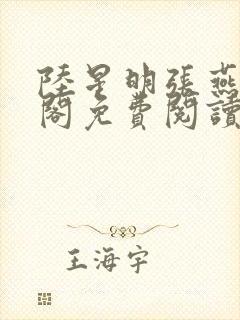 陸星明張燕
閣免費閱讀
王海宇